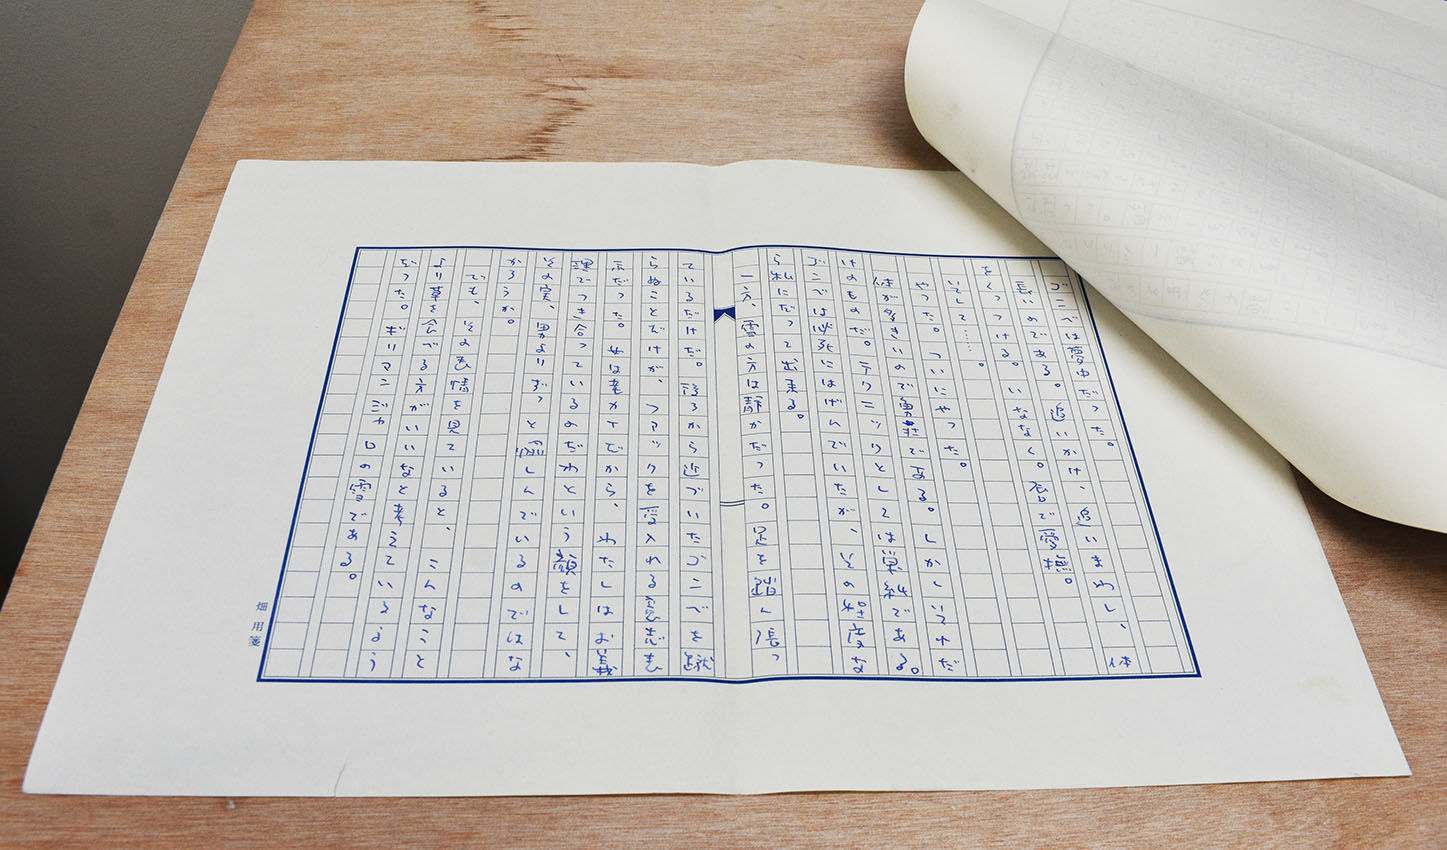 ゴンベは夢中だった。
長いのである。追いかけ、追いまわし、体
をくっつける。いななく。唇で愛撫。
そして……。
やった。ついにやった。
体が大きいので勇壮である。しかし
けのものだ。テクニックとしては単純である。
ゴンベは必死にはげんでいたが、その程度な
ら私にだって出来る。
一方、雪の方は静かだった。足を踏ん張っ
ているだけだ。後ろから近づいたゴンベを蹴
らぬことだけが、ファックを受入れる意志表
示だった。女は だから、わたしはお義
理でつき合っているのだわという顔をして、
その実、男よりずっと愉しんでいるのではな
かろうか。
でも、その表情を見ていると、こんなこと
より草を食べる方がいいなと考えているよう
だった。キリマンジャロの雪である。
畑用箋